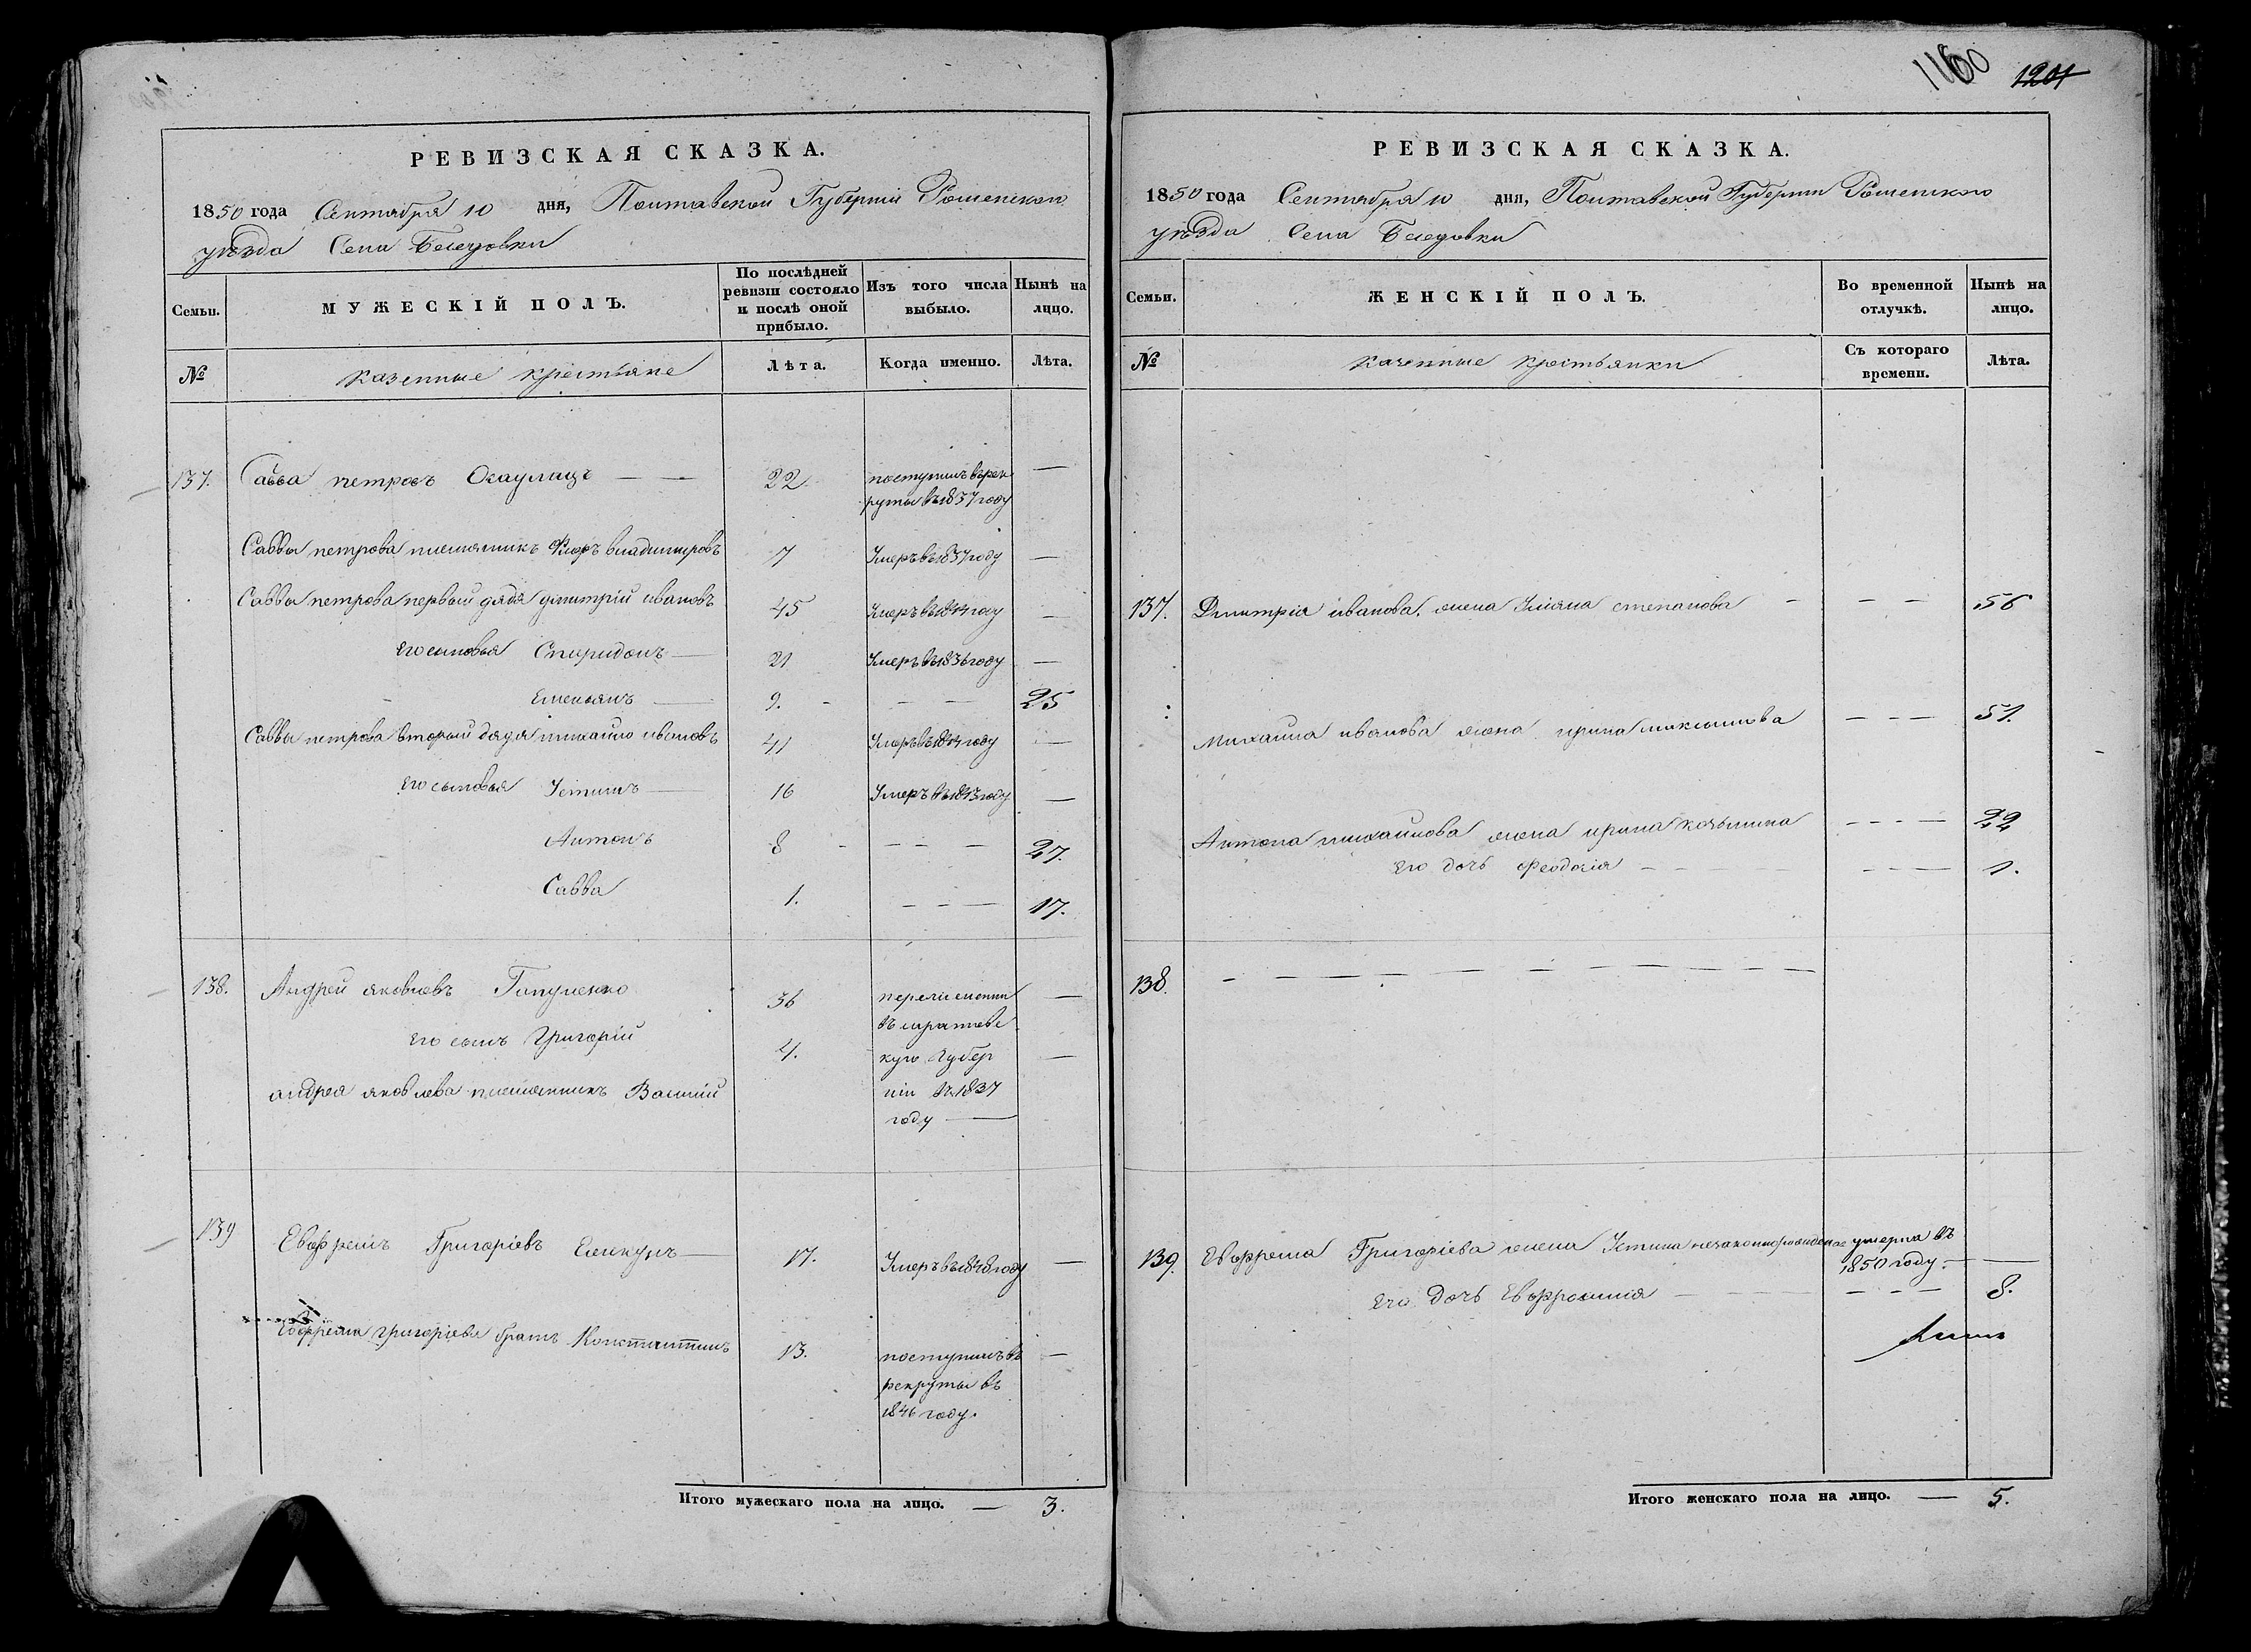 1160 1201
РЕВИЗСКАЯ СКАЗКА.
1850 года Сентября 10 дня, Полтавской Губерніи Роменского
уѣзда Села Беседовки
Семьи.
МУЖЕСКІЙ ПОЛЪ.
По послѣдней ревизіи состояло и послѣ оной прибыло.
Изъ того числа выбыло.
Нынѣ на лицо.
№
казенные крестьяне
Лѣта.
Когда именно.
Лѣта.
137. Савва петровъ Осаулецъ — — 22. поступилъ въ рек —
руты въ 1837 году
Саввы петрова племянникъ Флоръ владимировъ 7 Умеръ въ 1837 году —
Саввы петрова первый дядя дмитрій ивановъ 45 Умеръ въ 1844 году —
Его сыновья Спиридонъ — 21 Умеръ въ 1836 году —
Емельянъ — 9. - — — 25
Саввы петрова второй дядя михайло ивановъ 41 Умеръ въ 1844 году —
Его сыновья Устинъ — 16 Умеръ въ 1843 году —
Антонъ 8 - - - — 27.
Савва 1. - - — 17.
138. Андрей яковлевъ 36 перечислены —
въ
Его сынъ Григорій 4. кую Губер —
андрея яковлева племянникъ Василий ніи въ 1837
году —
139 Евфремъ Григоріевъ — 17. Умеръ въ 1848 году —
Евфрема григоріева братъ Константинъ 13. поступилъ въ —
рекруты въ
1846 году.
Итого мужескаго пола на лицо. — 3.
РЕВИЗСКАЯ СКАЗКА.
1850 года Сентября 10 дня, Полтавской Губерніи Роменского
уѣзда Села Беседовки
Семьи.
ЖЕНСКІЙ ПОЛЪ.
Во временной отлучкѣ.
Нынѣ на лицо.
№
казенные крестьянки
Съ котораго времени.
Лѣта.
137. Дмитрія иванова жена Уліяна степанова - - — — 56
Михаила иванова жена ирина максимова — - — 51.
Антона михайлова жена ирина козьмина - - - — 22
Его дочь Феодосія - - - — 1.
138. - — — — — — — — — —
139. Евфрема Григоріева жена Устина незаконнорожденная умерла въ
1850 году. — —
Его дочь Евфросинія — — - - — 8.
Итого женскаго пола на лицо. — 5.